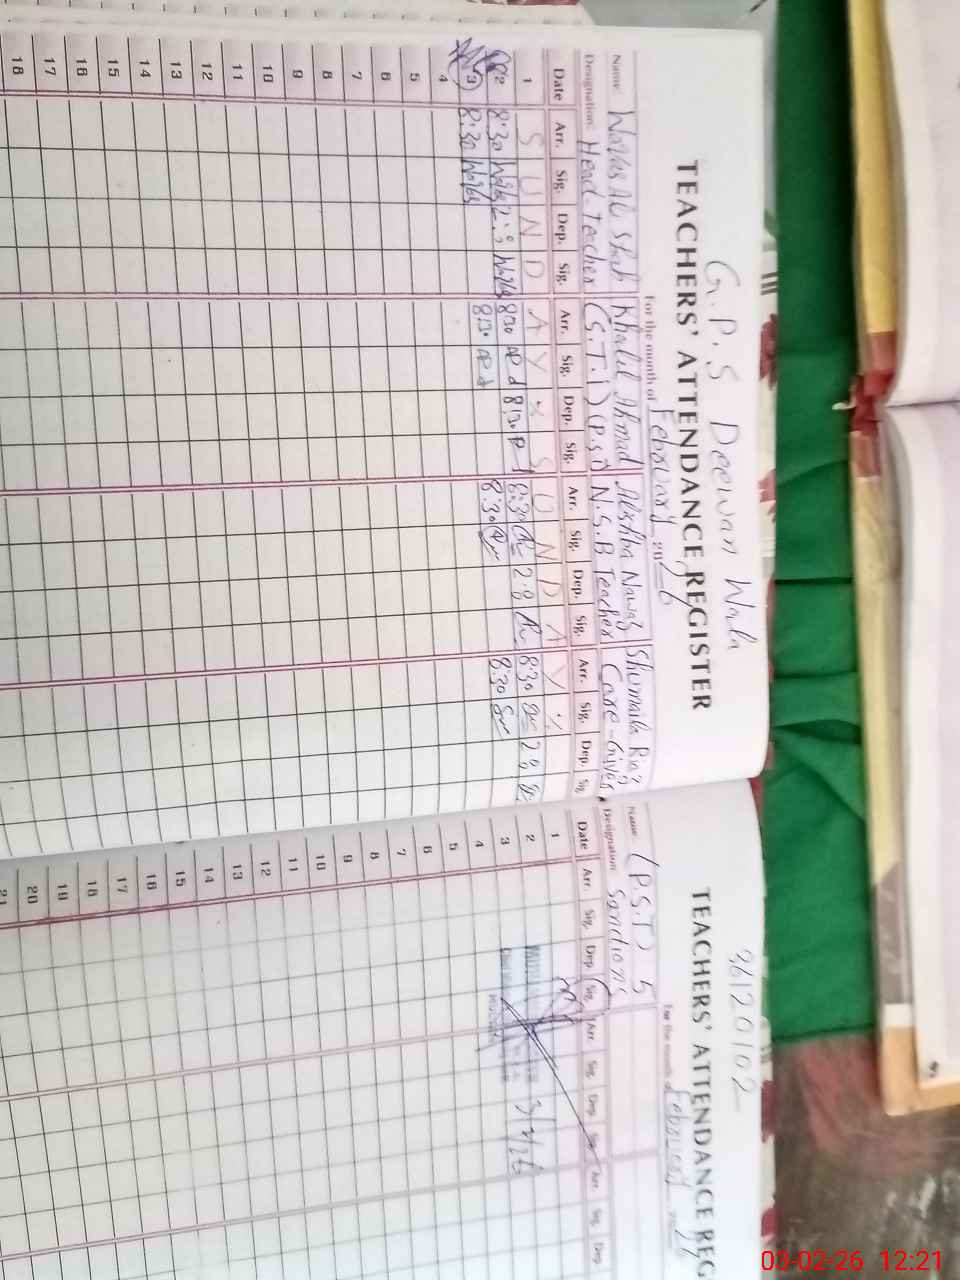 G.P.S Deewan Wala
TEACHERS' ATTENDANCE REGISTER
For the month of February 2026
Name: Waqas Ali Shah Khalil Ahmad Nawaz Shumaila Riaz
Designation: Head Teacher (S.T.I) (P.S.T) N.S.B Teacher Care-Giver
Date Arr. Sig. Dep. Sig. Arr. Sig. Dep. Sig. Arr. Sig. Dep. Sig. Arr. Sig. Dep. Sig.
1 S U N D A Y X S U N D A Y X
2 8:30 8:30 8:30 8:30
3 8:30 8:30 8:30 8:30
4
5
6
7
8
9
10
11
12
13
14
15
16
17
18
36120102
TEACHERS' ATTENDANCE REG
For the month of February 2026
Name: (P.S.T) 5
Designation: Sanctions
Date Arr. Sig. Dep. Sig. Arr. Sig. Dep. Sig. Arr. Sig. Dep.
1
2 3/2/26
3
4
5
6
7
8
9
10
11
12
13
14
15
16
17
18
19
20
21
03-02-26 12:21